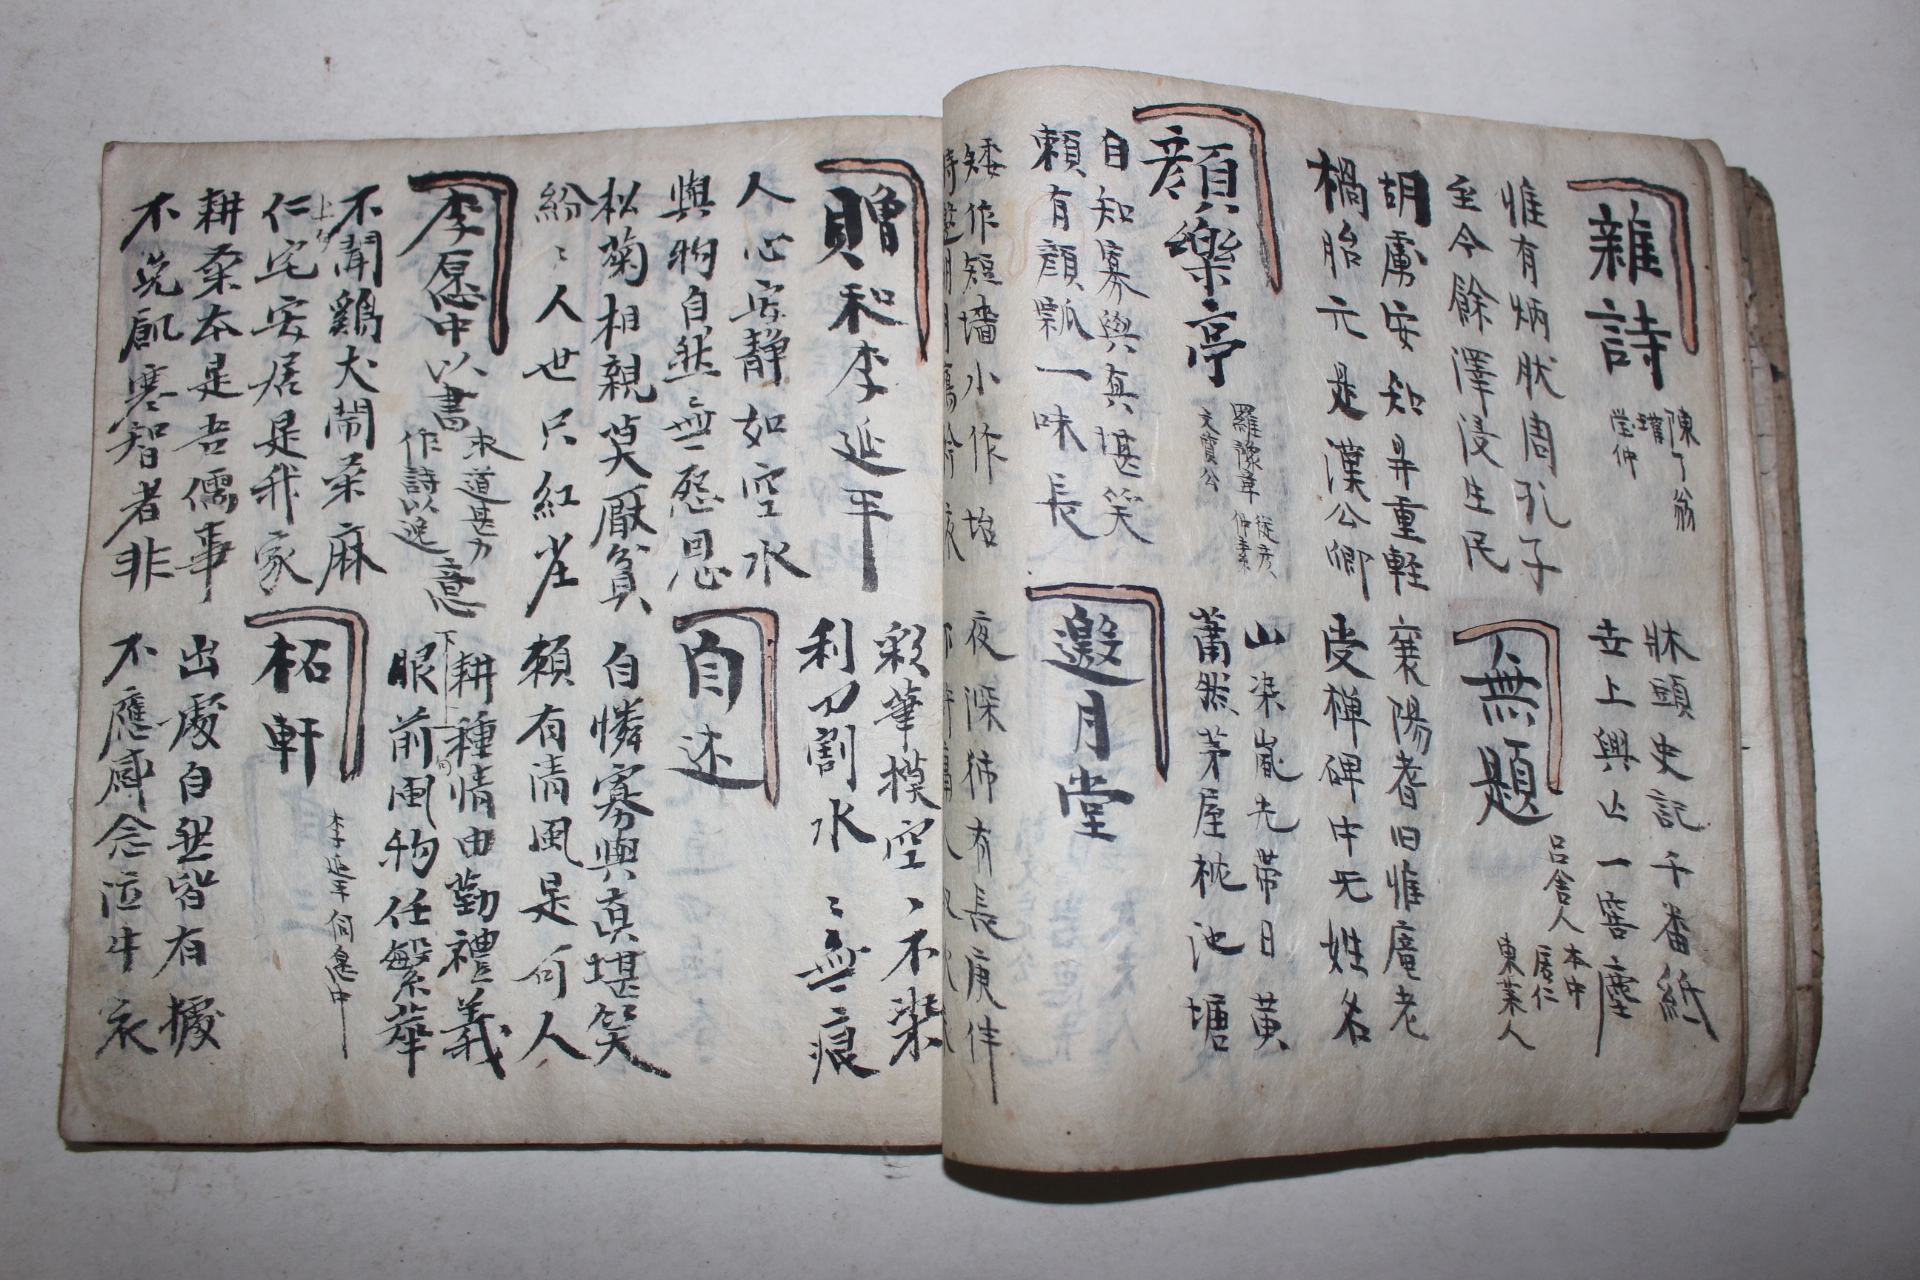 雜詩
陳了翁
瓘
瑩仲
惟有炳狀周孔子
至今餘澤浸生民
胡虜安知鼎重輕
禍胎元是漢公卿
顏樂亭
羅豫章 從彦
文質公 仲素
自知寡與真堪笑
賴有顏瓢一味長
矮作短墻小作坮
牀頭史記千番紙
世上興亡一窖塵
無題
呂舍人 本中
居仁
東萊人
襄陽耆旧惟龐老
受禅碑中无姓名
山染嵐光帶日黄
蕭然茅屋枕池塘
邀月堂
夜深猶有長庚伴
贈和李延平
人心安靜如空水
與物自然〻無怨恩
松菊相親莫厭貧
紛〻人世只紅雀
李愿中以書
求道甚力
作詩以逆
意
不聞鷄犬鬧桑麻
仁宅安居是我家
耕桑本是吾儒事
不免飢寒智者非
彩筆摸空〻不染
利刀割水〻無痕
自述
自憐寡與真堪笑
賴有清風是何人
下
耕種情田勤禮義
眼前風物任繁華
柘軒
李延平
出處自然皆有據
不應感念泣牛衣